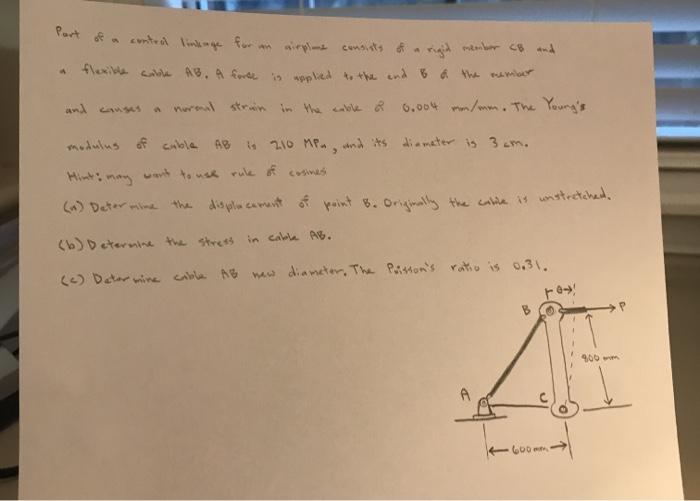 Part of a control linkage for an airplane consists of a rigid member CB and
a flexible cable AB. A force is applied to the end B of the member
and causes a normal strain in the cable of 0.004 mm/mm. The Young's
modulus of cable AB is 210 MPa, and its diameter is 3 cm.
Hint: may want to use rule of cosines
(a) Determine the displacement of point B. Originally the cable is unstretched.
(b) Determine the stress in cable AB.
(c) Determine cable AB new diameter. The Poisson's ratio is 0.31.
θ
B
P
800 mm
A
C
600 mm